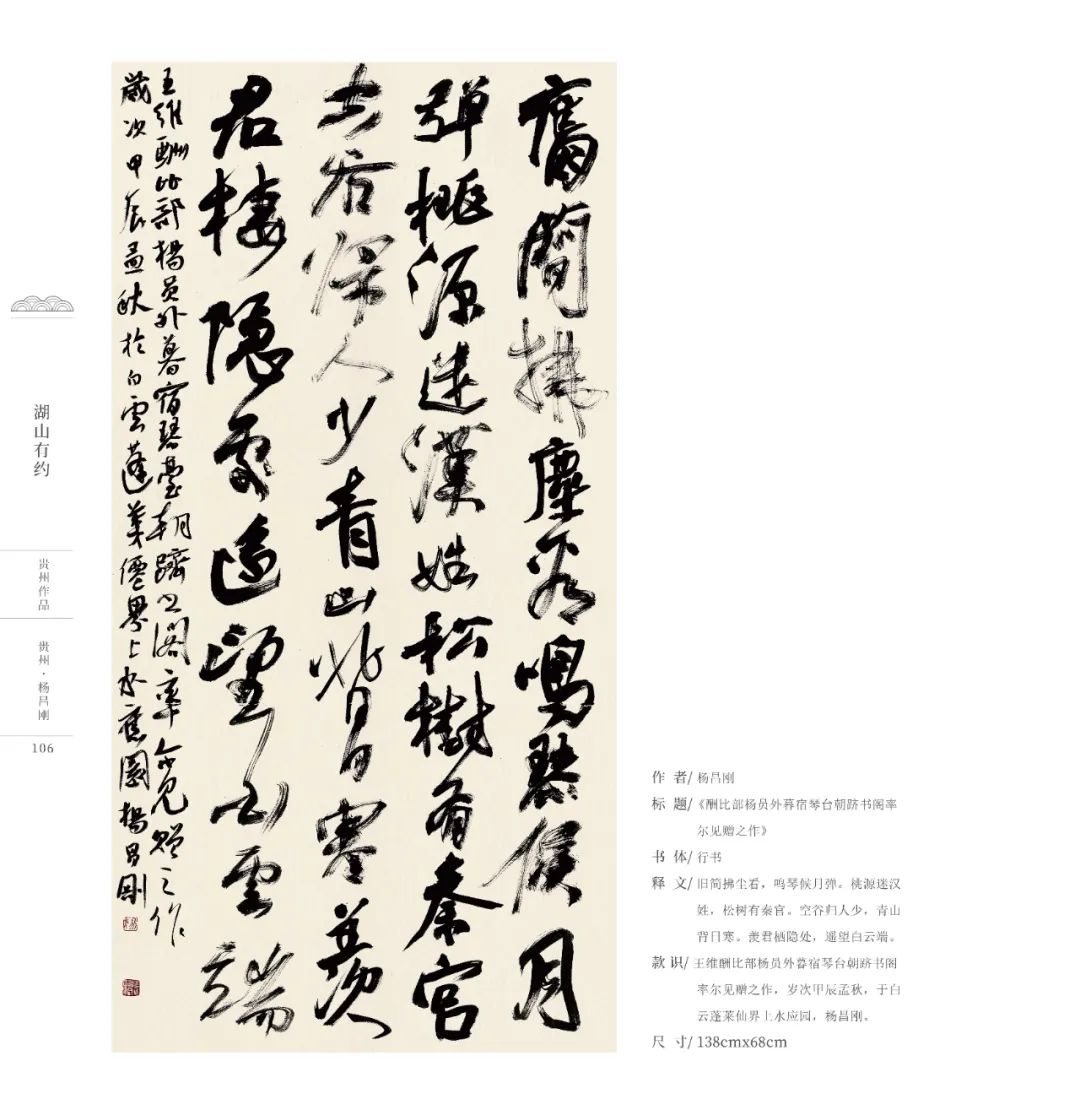 舊簡拂塵看鳴琴候月
彈桃源迷漢姓松樹有秦官
空谷歸人少青山背日寒羨
君棲隱處遙望白雲端
王維酬比部楊員外暮宿琴臺朝躋書閣率爾見贈之作
歲次甲辰孟秋於白雲蓬萊僊界上水應園楊昌剛
湖山有约
贵州作品
贵州·杨昌刚
106
作 者/ 杨昌刚
标 题/《酬比部杨员外暮宿琴台朝跻书阁率
尔见赠之作》
书 体/ 行书
释 文/ 旧简拂尘看，鸣琴候月弹。桃源迷汉
姓，松树有秦官。空谷归人少，青山
背日寒。羡君栖隐处，遥望白云端。
款 识/ 王维酬比部杨员外暮宿琴台朝跻书阁
率尔见赠之作，岁次甲辰孟秋，于白
云蓬莱仙界上水应园，杨昌刚。
尺 寸/ 138cmx68cm